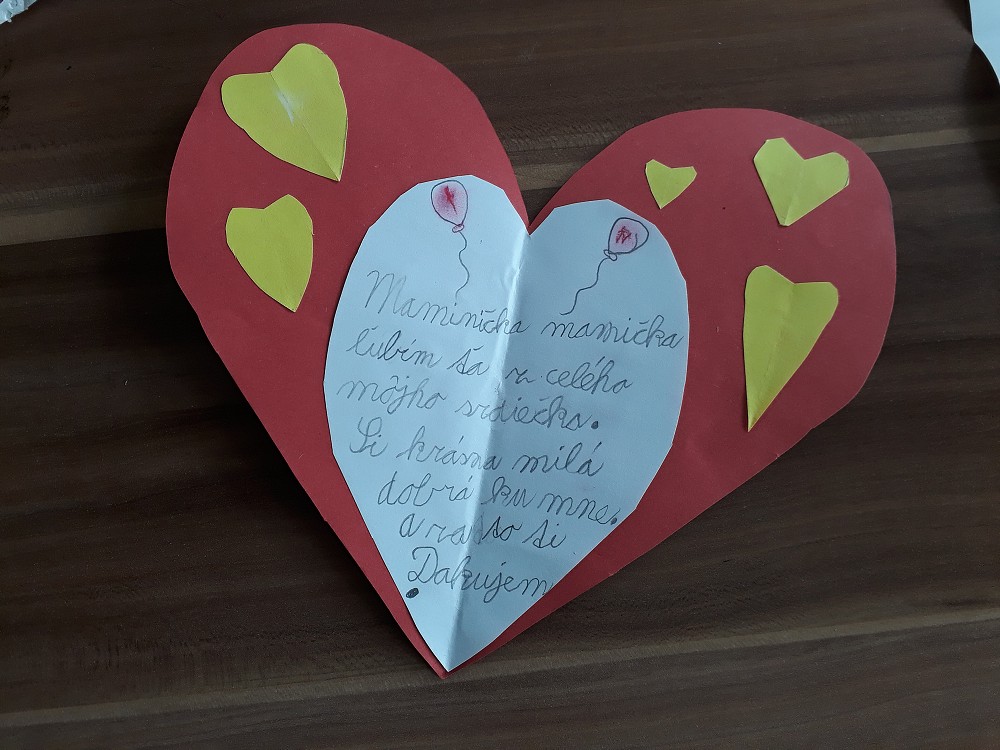 Maminička mamička
ľubím ťa z celého
môjho srdiečka.
Si krásna milá
dobrá ku mne.
a za to si
Ďakujem
.